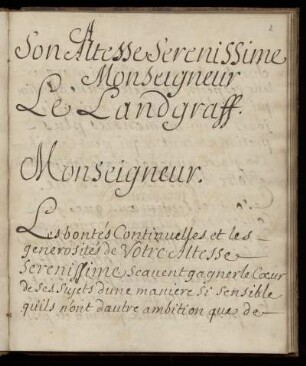 2
Son Altesse Serenissime
Monseigneur
Le Landgraff.
Monseigneur.
Les bontés Continuelles et les
generosités de Votre Altesse
Serenissime scauent gagner le Cœur
de ses Sujets d'une maniere si sensible
qu'ils n'ont dautre ambition que de